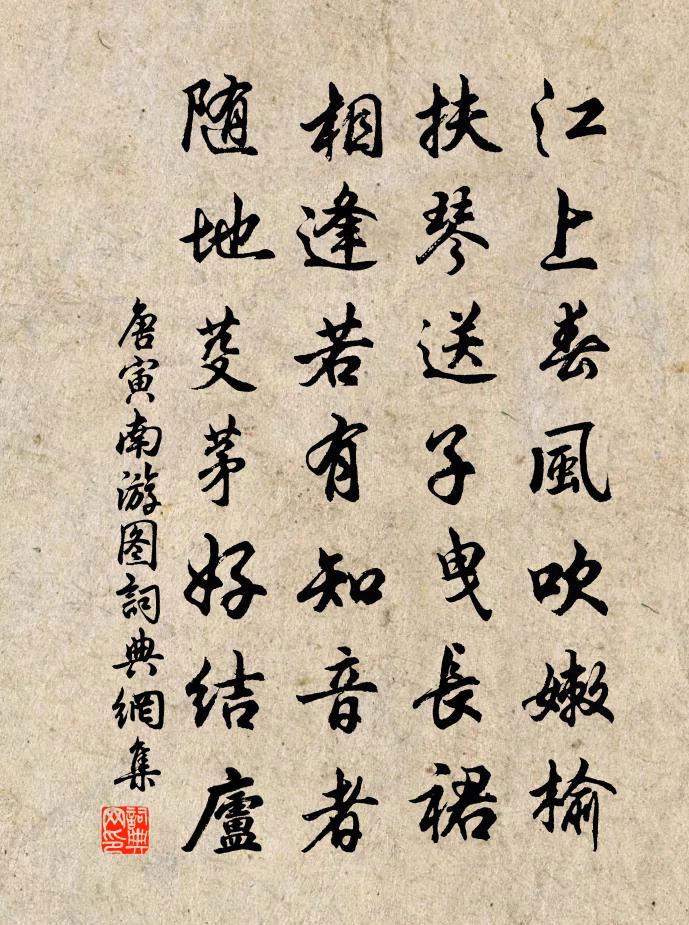 江上春風吹嫩榆
扶琴送子曳長裾
相逢若有知音者
随地芟茅好結廬
唐寅南游图詞典網集
詞典网印